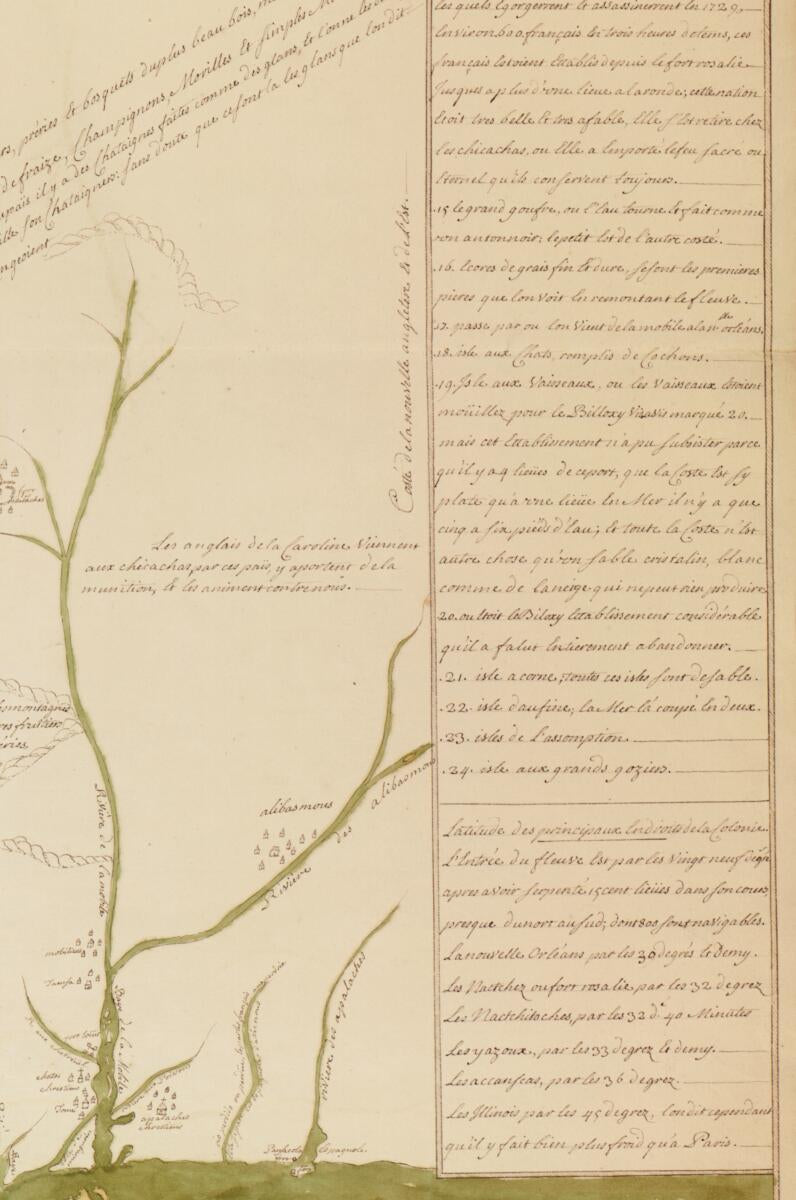 prèries et bosquets du plus beau bois,
de fraize, Champignons, Morilles et simples
il y a des Chataignes faites comme des glans, et l'onne les
son Chataigners. sans doute que ce sont la les glans que l'on dit
mangeoient
Costé de la nouvelle angletere et de l'Est.
Les anglais de la Caroline Viennent
aux chicachas par ces païs, y aportent de la
munition, et les animent contre nous.
montagnes
fruitiers
Rivière de la mobile
alibasmous
Rivière des alibasmous
mobiliens
Tawsa
Baye de la Mobile
chretiens
apalaches
chrétiens
rivière des apalaches
Espagnole
les quels Egorgerrent et assassinerrent En 1729.
Environ 600 français En trois heures de tems, ces
français etoient Etablis depuis le fort rosalie
Jusques a plus d'vne lieue a la ronde; cette nation
Etoit tres belle et tres afable, Elle s'Est retiré chez
les chicachas, ou Elle a Emporté le feu sacré ou
Eternel qu'ils conservent toujours.
.15 le grand goufre, ou l'Eau tourne et fait comme
von antonnoir; le petit Est de l'autre costé.
.16. Ecores de grais fin et dure, se sont les premieres
pieres que l'on voit En remontant le fleuve.
.17. passe par ou l'on vient de la mobile a la nlle orléans.
.18. isle aux Chats, romplis de Cochons.
.19. Isle aux Vaisseaux, ou les Vaisseaux Etoient
moüillez pour le Billoxy Vis a Vis marqué 20.
mais cet Etablissement n'a pu subsister parce
qu'il y a 4 lieües de ce port, que la Coste Est sy
plate qu'a vne lieüe En Mer il n'y a que
cinq a six piëds d'Eau; et toute la Coste n'Est
autre chose qu'von sable cristalin, blanc
comme de la neige qui ne peut rien produire
.20. ou Etoit le Biloxy Etablissement considérable
qu'il a falut Entierement abandonner.
.21. isle a corne; toutes ces isles sont de sable.
.22. isle daufine; la Mer l'a coupé En deux.
.23. isles de l'assomption.
.24. isle aux grands goziers.
Latitude des principaux Endroits de la Colonie.
L'Entrée du fleuve Est par les Vingt neuf degrés
apres avoir serpenté 15 cent lieües dans son cours,
presque du nort au sud; dont 800 sont navigables.
La nouvelle Orléans par les 30 degrés et Demy.
Les Nactchez ou fort rosalie par les 32 degrez
Les Nactchitoches, par les 32 d. 40 Minutes
Les yazoux, par les 33 degrez et demy.
Les accansças, par les 36 degrez.
Les Illinois par les 45 degrez, l'on dit cependant
qu'il y fait bien plus froid qu'a Paris.